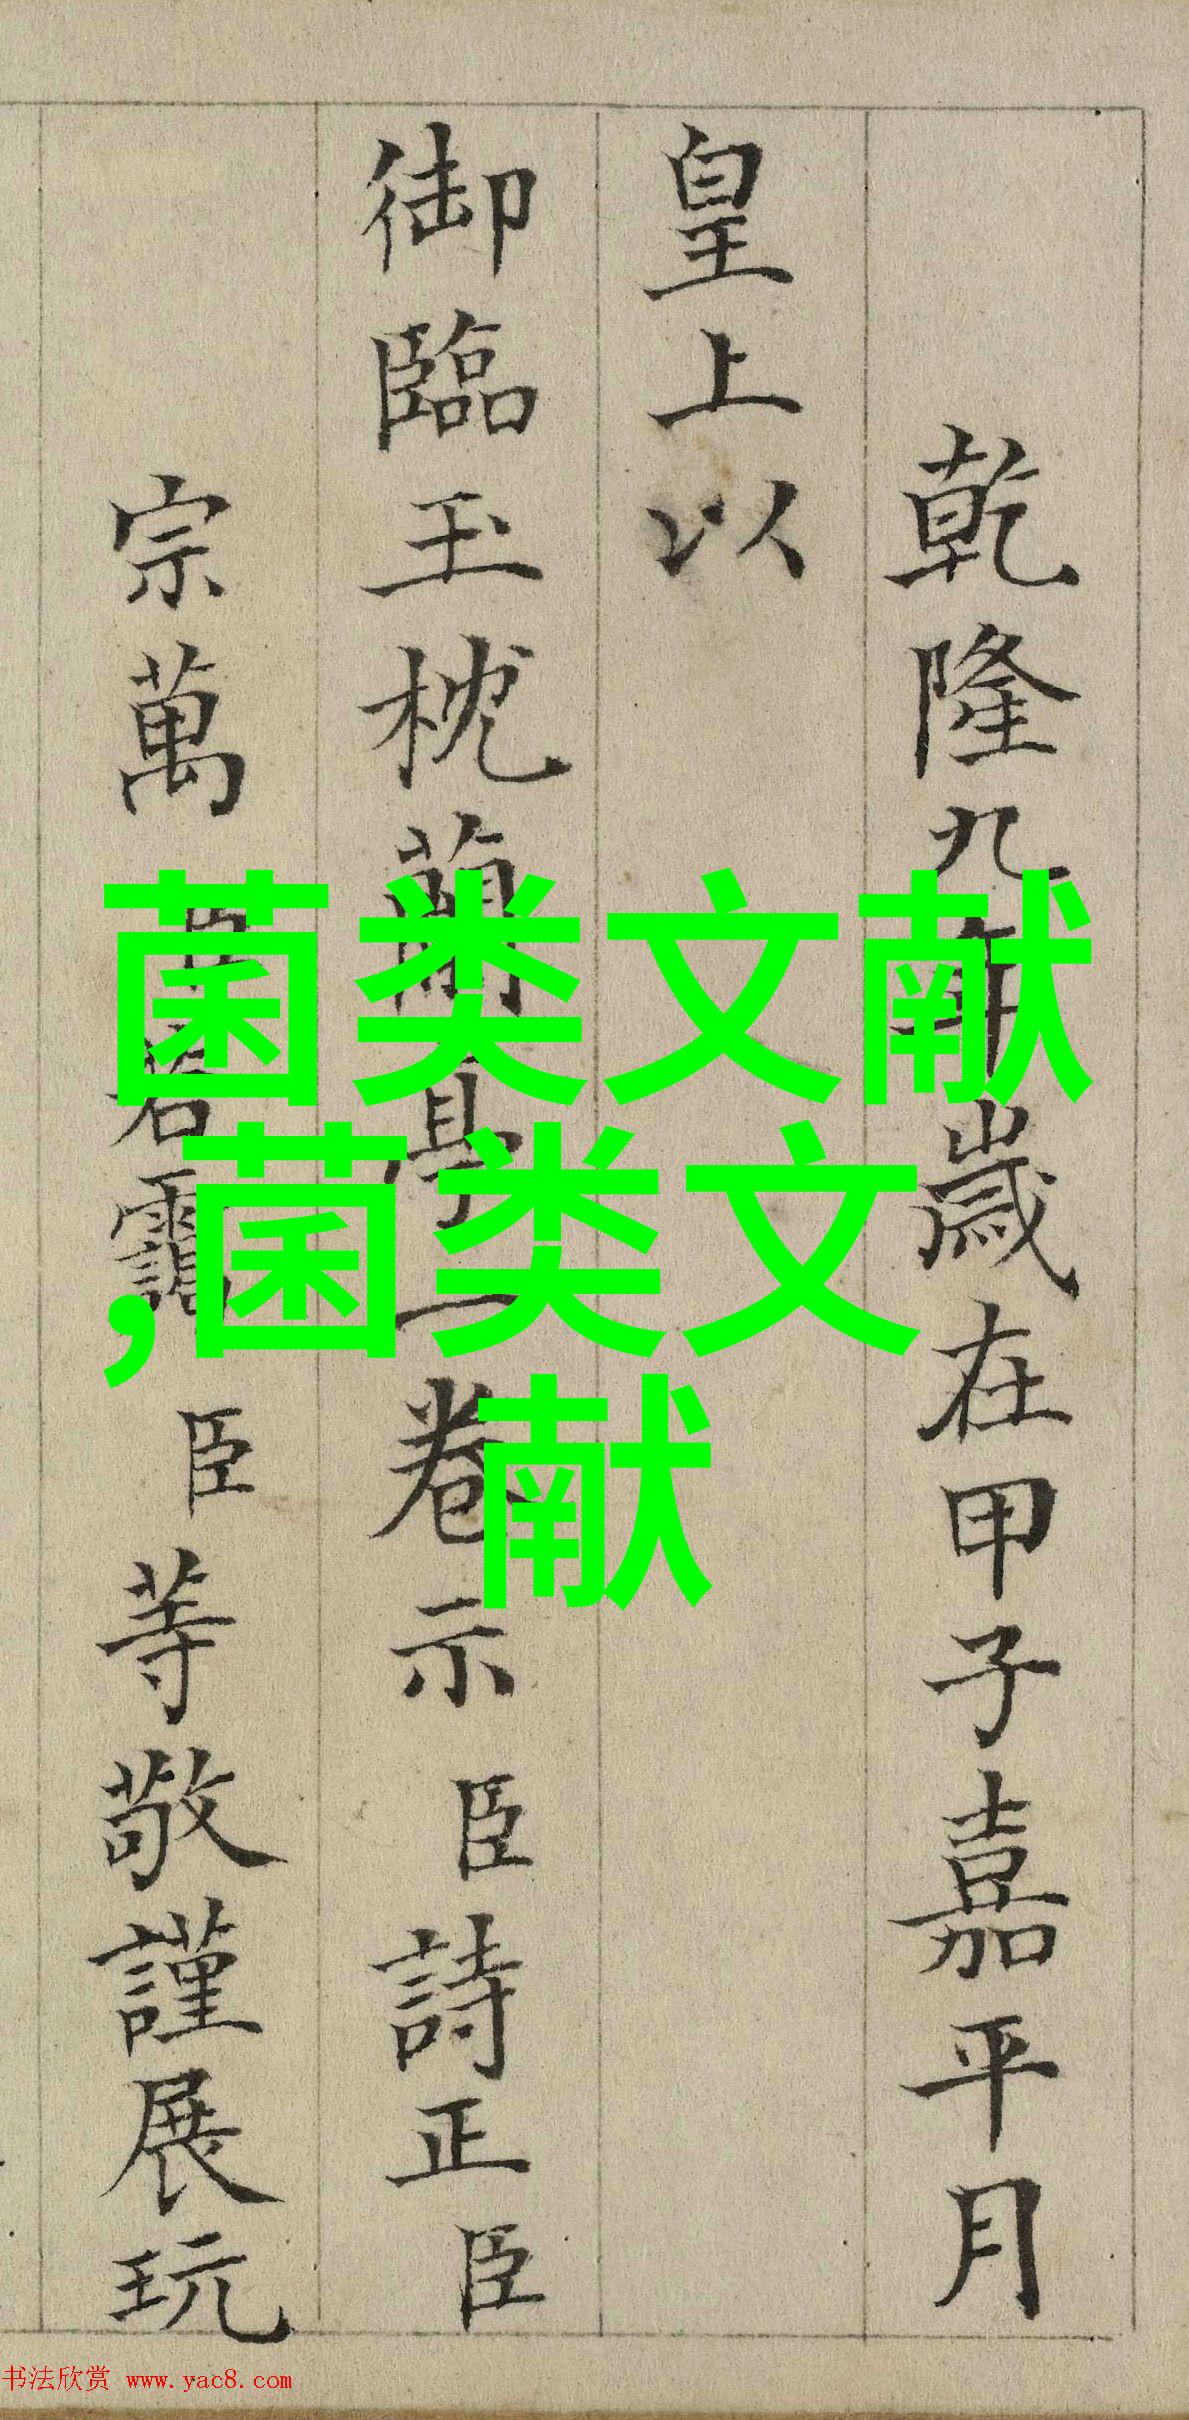 乾隆九年歲在甲子嘉平月
皇上以
御臨玉枕蘭亭一卷示臣詩正臣
宗萬臣若靄臣等敬謹展玩
菌类文献
,菌类文
献
书法欣赏 www.yac8.com